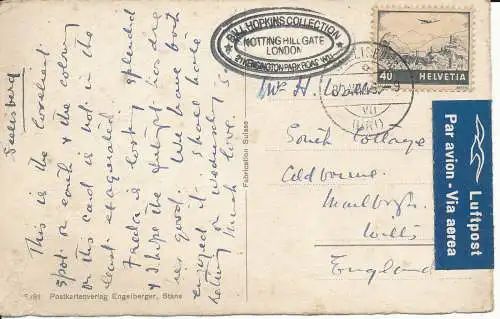 Seelisberg
This is the loveliest
spot on earth & the colouring
on this card is not in the
least exagerated.
Freda is looking splendid
& I hope the future for me
is good. We have both
enjoyed it. Shall have
on Wednesday 5
Much love.
5191 Postkartenverlag Engelberger, Stans
Fabrication Suisse
BILL HOPKINS COLLECTION
NOTTING HILL GATE
LONDON
2 KENSINGTON PARK ROAD W11
40 HELVETIA
(URI)
VII
South Cottage
Aldbourne.
Marlboro'.
Wilts
England
Par avion - Via aerea
Luftpost